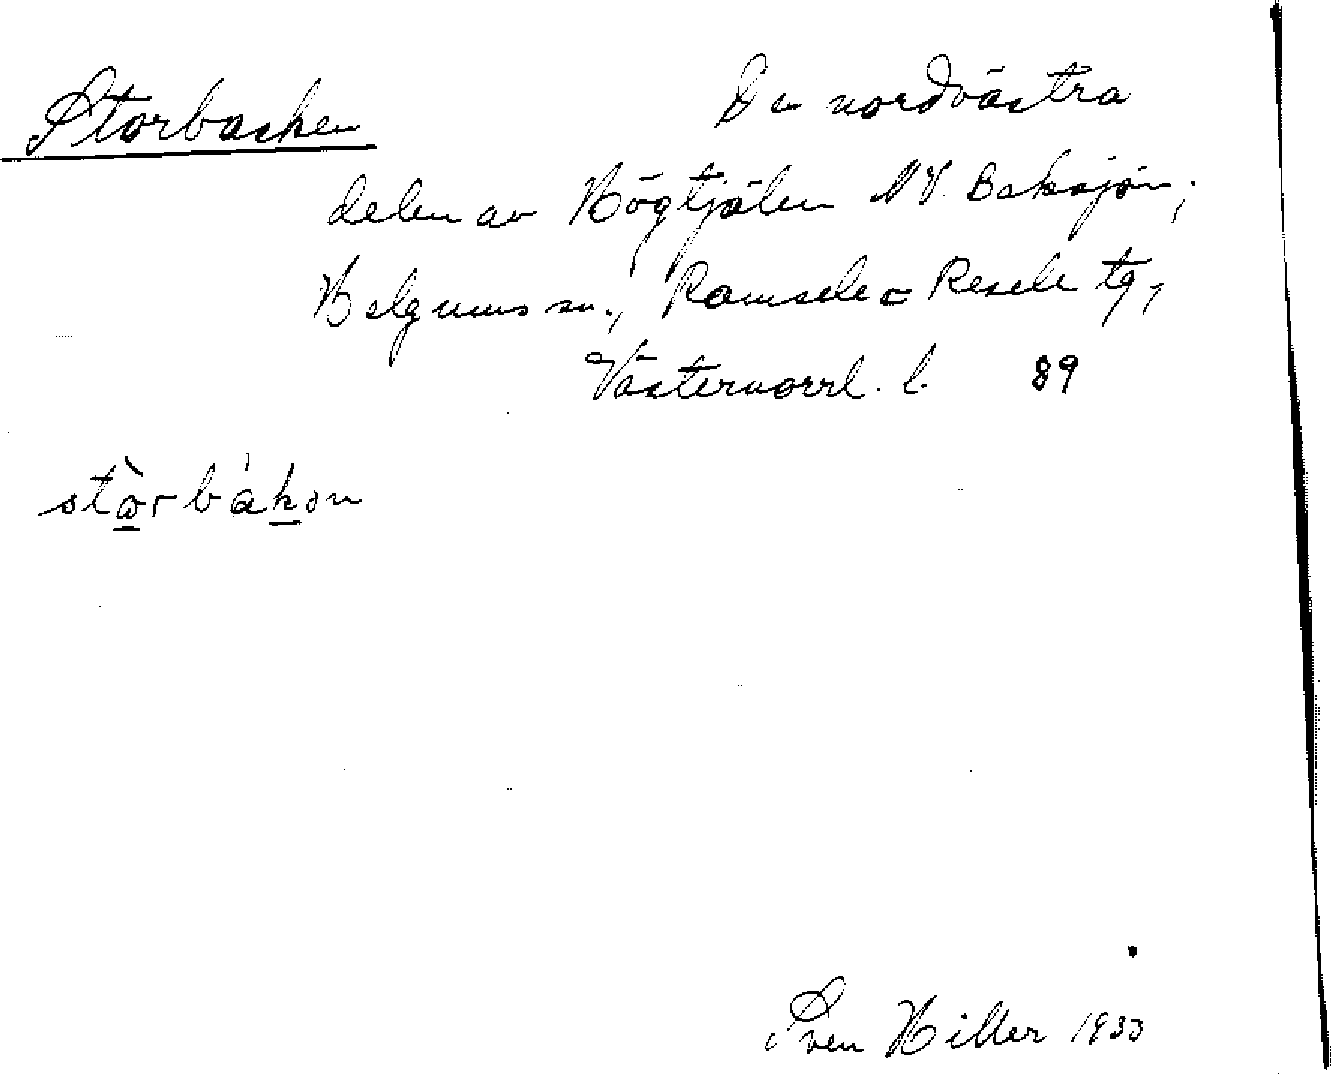 Storbacken
De nordvästra
delen av Högtjälen NV. Baksjön;
Helgums sn., Ramsele o Resele tg,
Västernorrl. l. 89
stòrbákɔn
Sven Hiller 1933